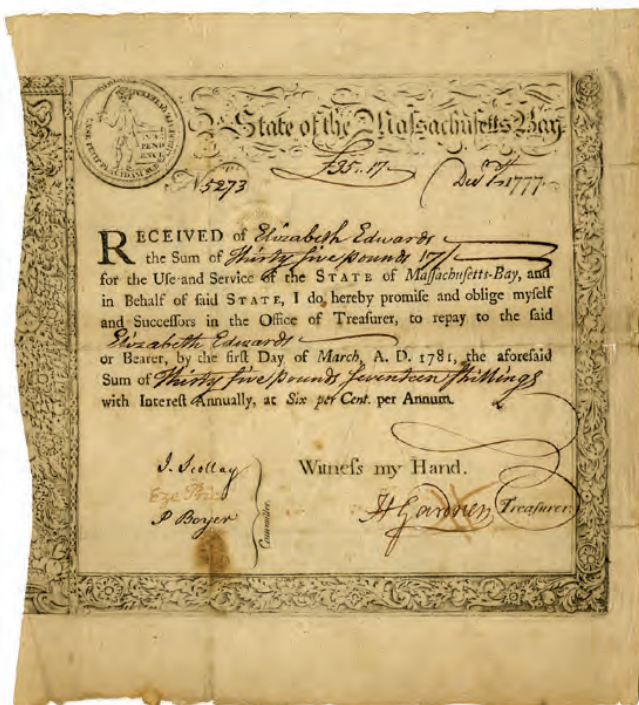 State of the Massachusetts Bay.
INDE
PEND
ENCE
No 5273 £35.. 17.. Decr 1st 1777.
RECEIVED of Elizabeth Edwards
the Sum of Thirty five pounds 17/
for the Use and Service of the STATE of Maſſachuſetts-Bay, and
in Behalf of ſaid STATE, I do hereby promiſe and oblige myſelf
and Succeſſors in the Office of Treaſurer, to repay to the ſaid
Elizabeth Edwards
or Bearer, by the firſt Day of March, A. D. 1781, the aforeſaid
Sum of Thirty five pounds Seventeen Shillings
with Intereſt Annually, at Six per Cent. per Annum.
Witneſs my Hand.
J. Scollay
Eze Price
P Boyer
Committee.
H Gardner Treaſurer.